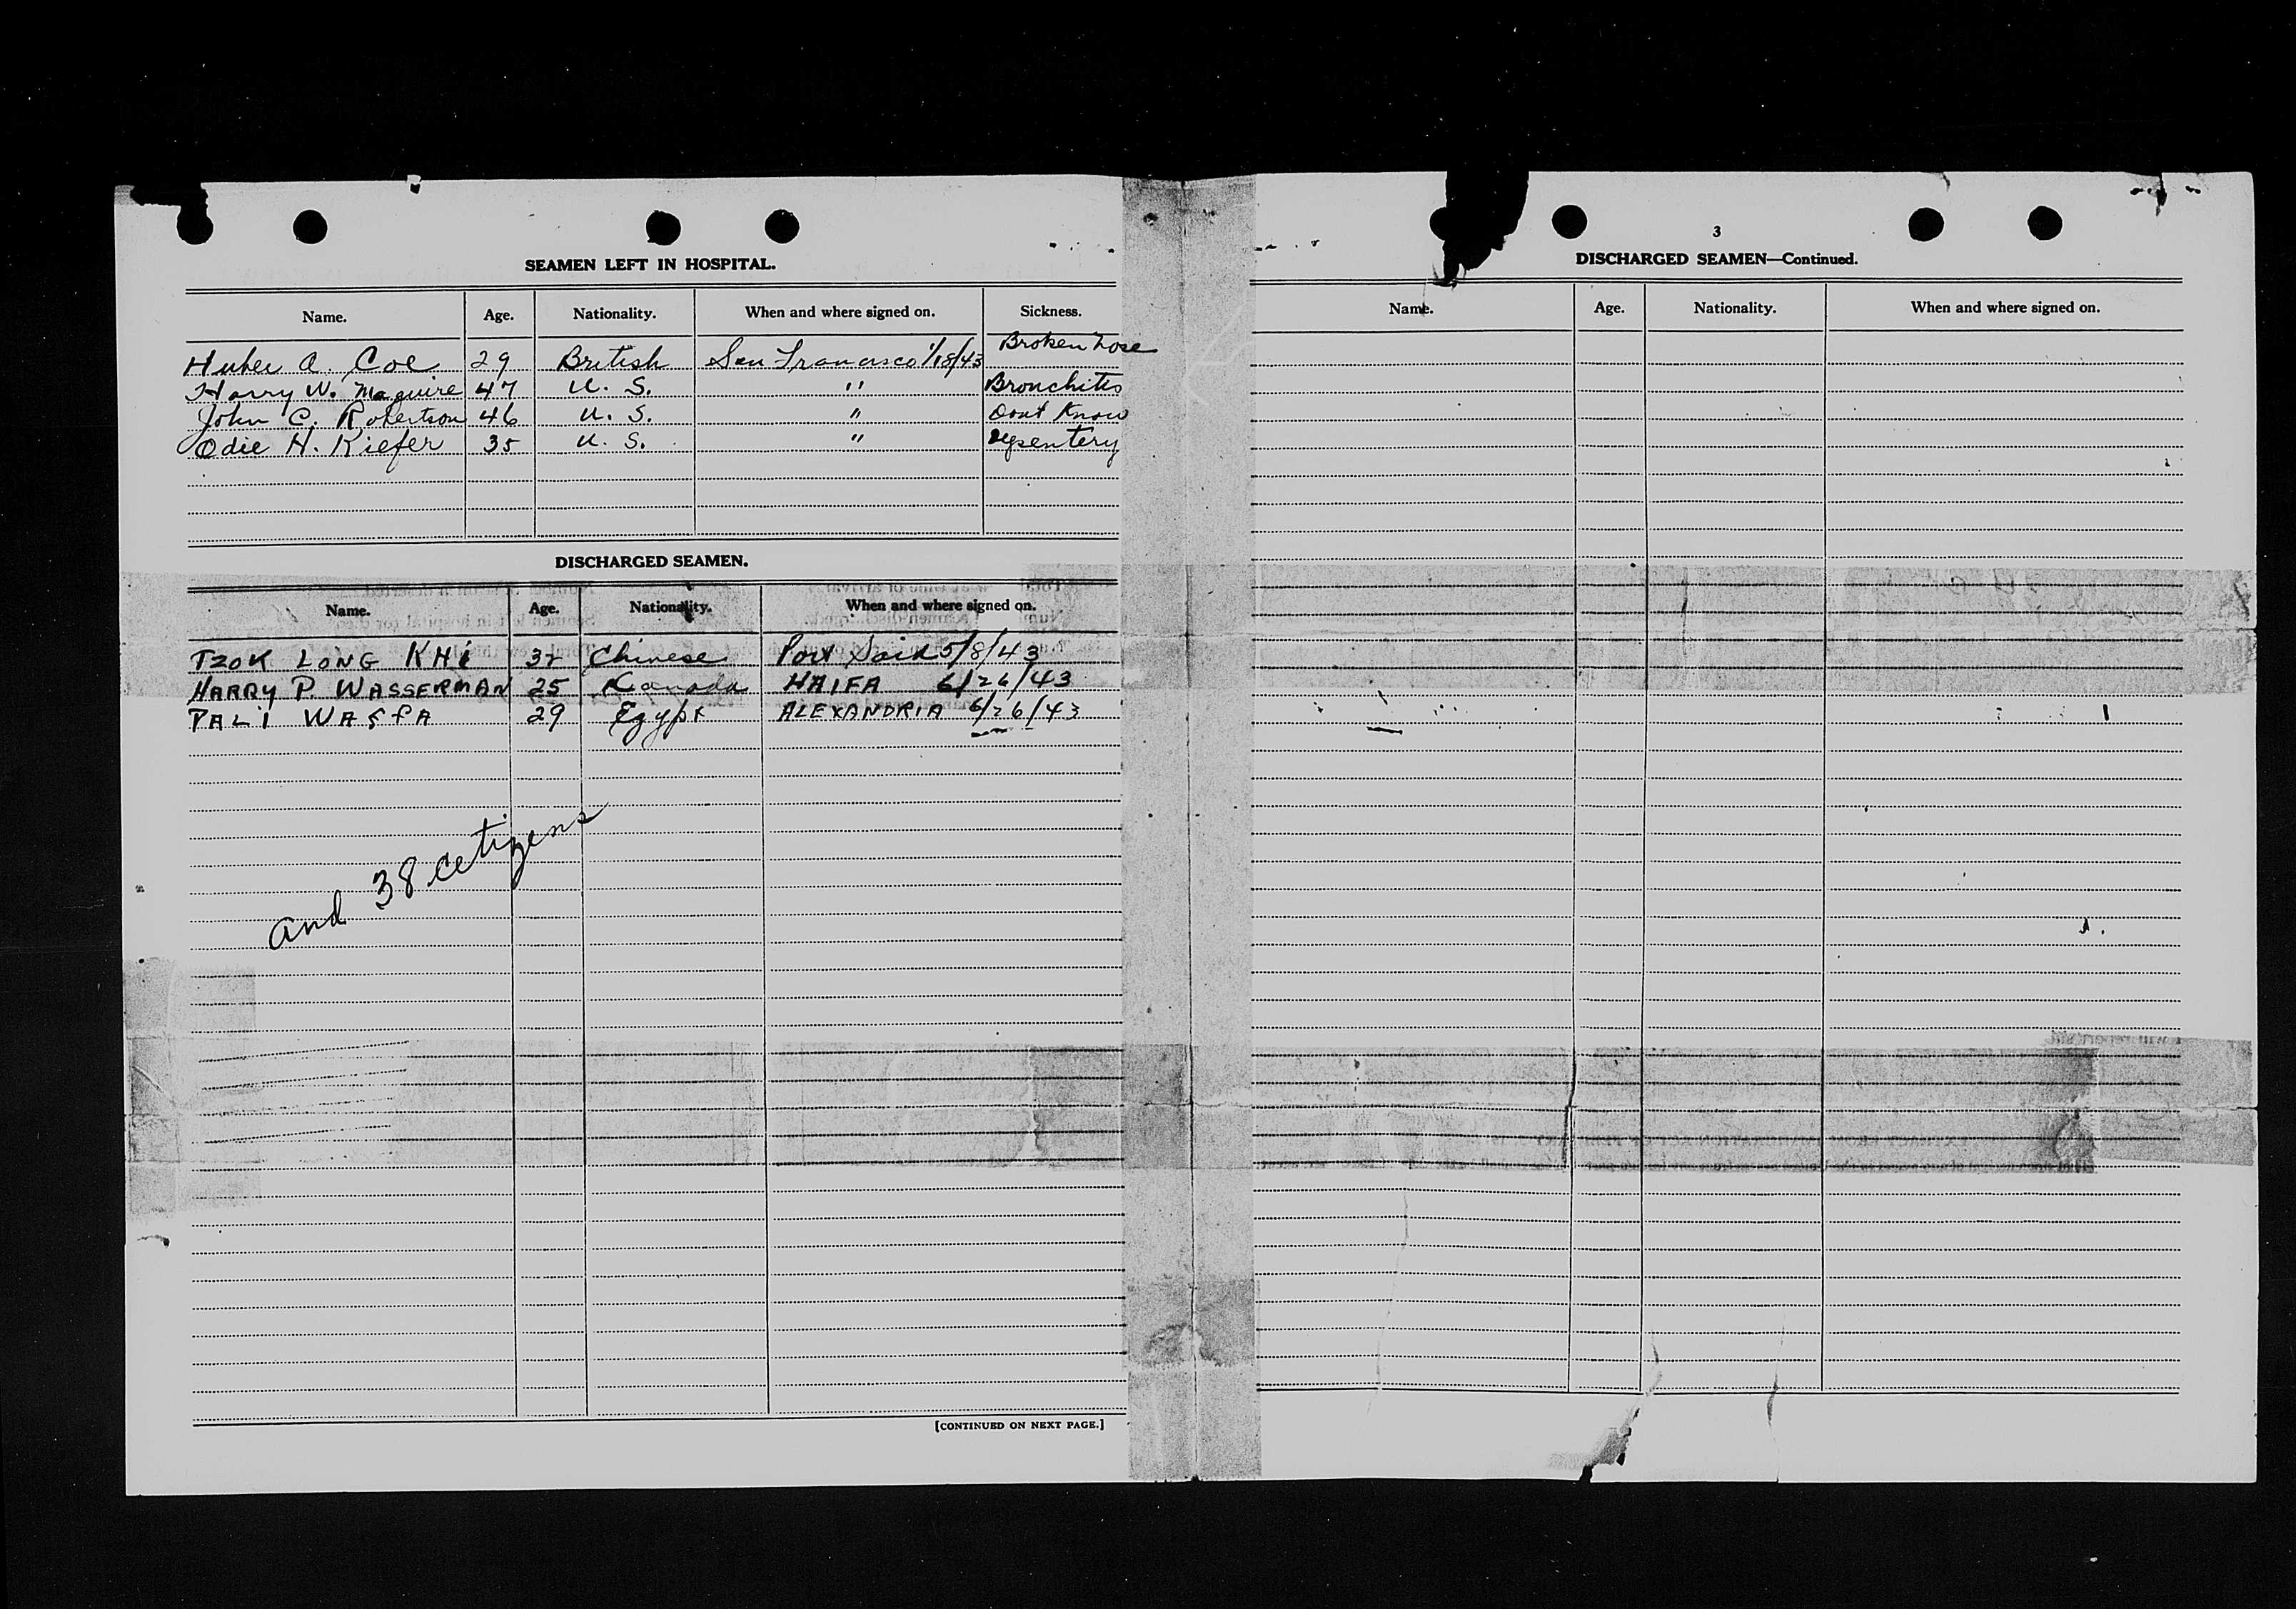 SEAMEN LEFT IN HOSPITAL.
Name. Age. Nationality. When and where signed on. Sickness.
Huber A. Coe 29 British San Francisco 1/18/43 Broken nose
Harry W. Maguire 47 U. S. " Bronchitis
John C. Robertson 46 U. S. " Dont Know
Odie H. Kiefer 35 U. S. " Dysentery
DISCHARGED SEAMEN.
Name. Age. Nationality. When and where signed on.
TZOK LONG KHI 32 Chinese Port Said 5/8/43
HARRY P. WASSERMAN 25 Kanada HAIFA 6/26/43
PALI WASFA 29 Egypt ALEXANDRIA 6/26/43
and 38 citizens
[CONTINUED ON NEXT PAGE.]
3
DISCHARGED SEAMEN—Continued.
Name. Age. Nationality. When and where signed on.